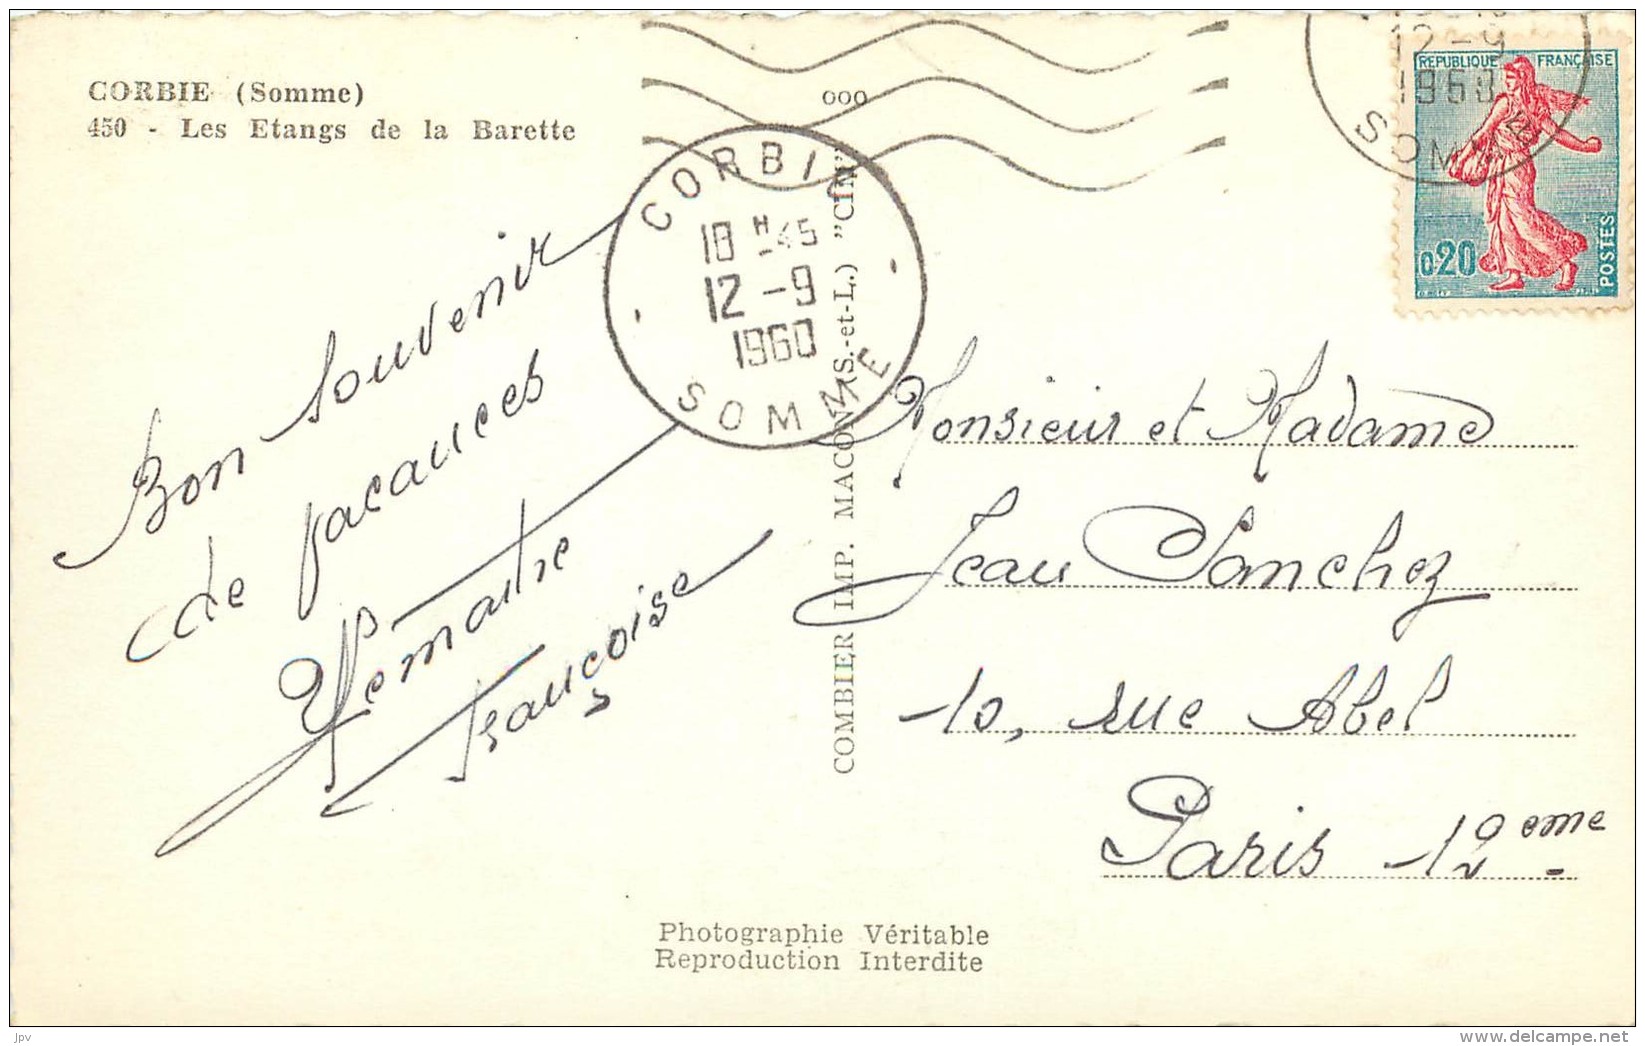 CORBIE (Somme)
450 - Les Etangs de la Barette
Bon souvenir
de vacances
Lemaitre
Françoise
ooo
CORBIE
18H-45
12-9
1960
SOMME
COMBIER IMP. MACON (S.-et-L.) "CIM"
12-9
1960
SOMME
REPUBLIQUE FRANÇAISE
0,20
POSTES
Monsieur et Madame
Jean Sanchez
10, rue Abel
Paris -12eme
Photographie Véritable
Reproduction Interdite
jpv
©www.delcampe.net